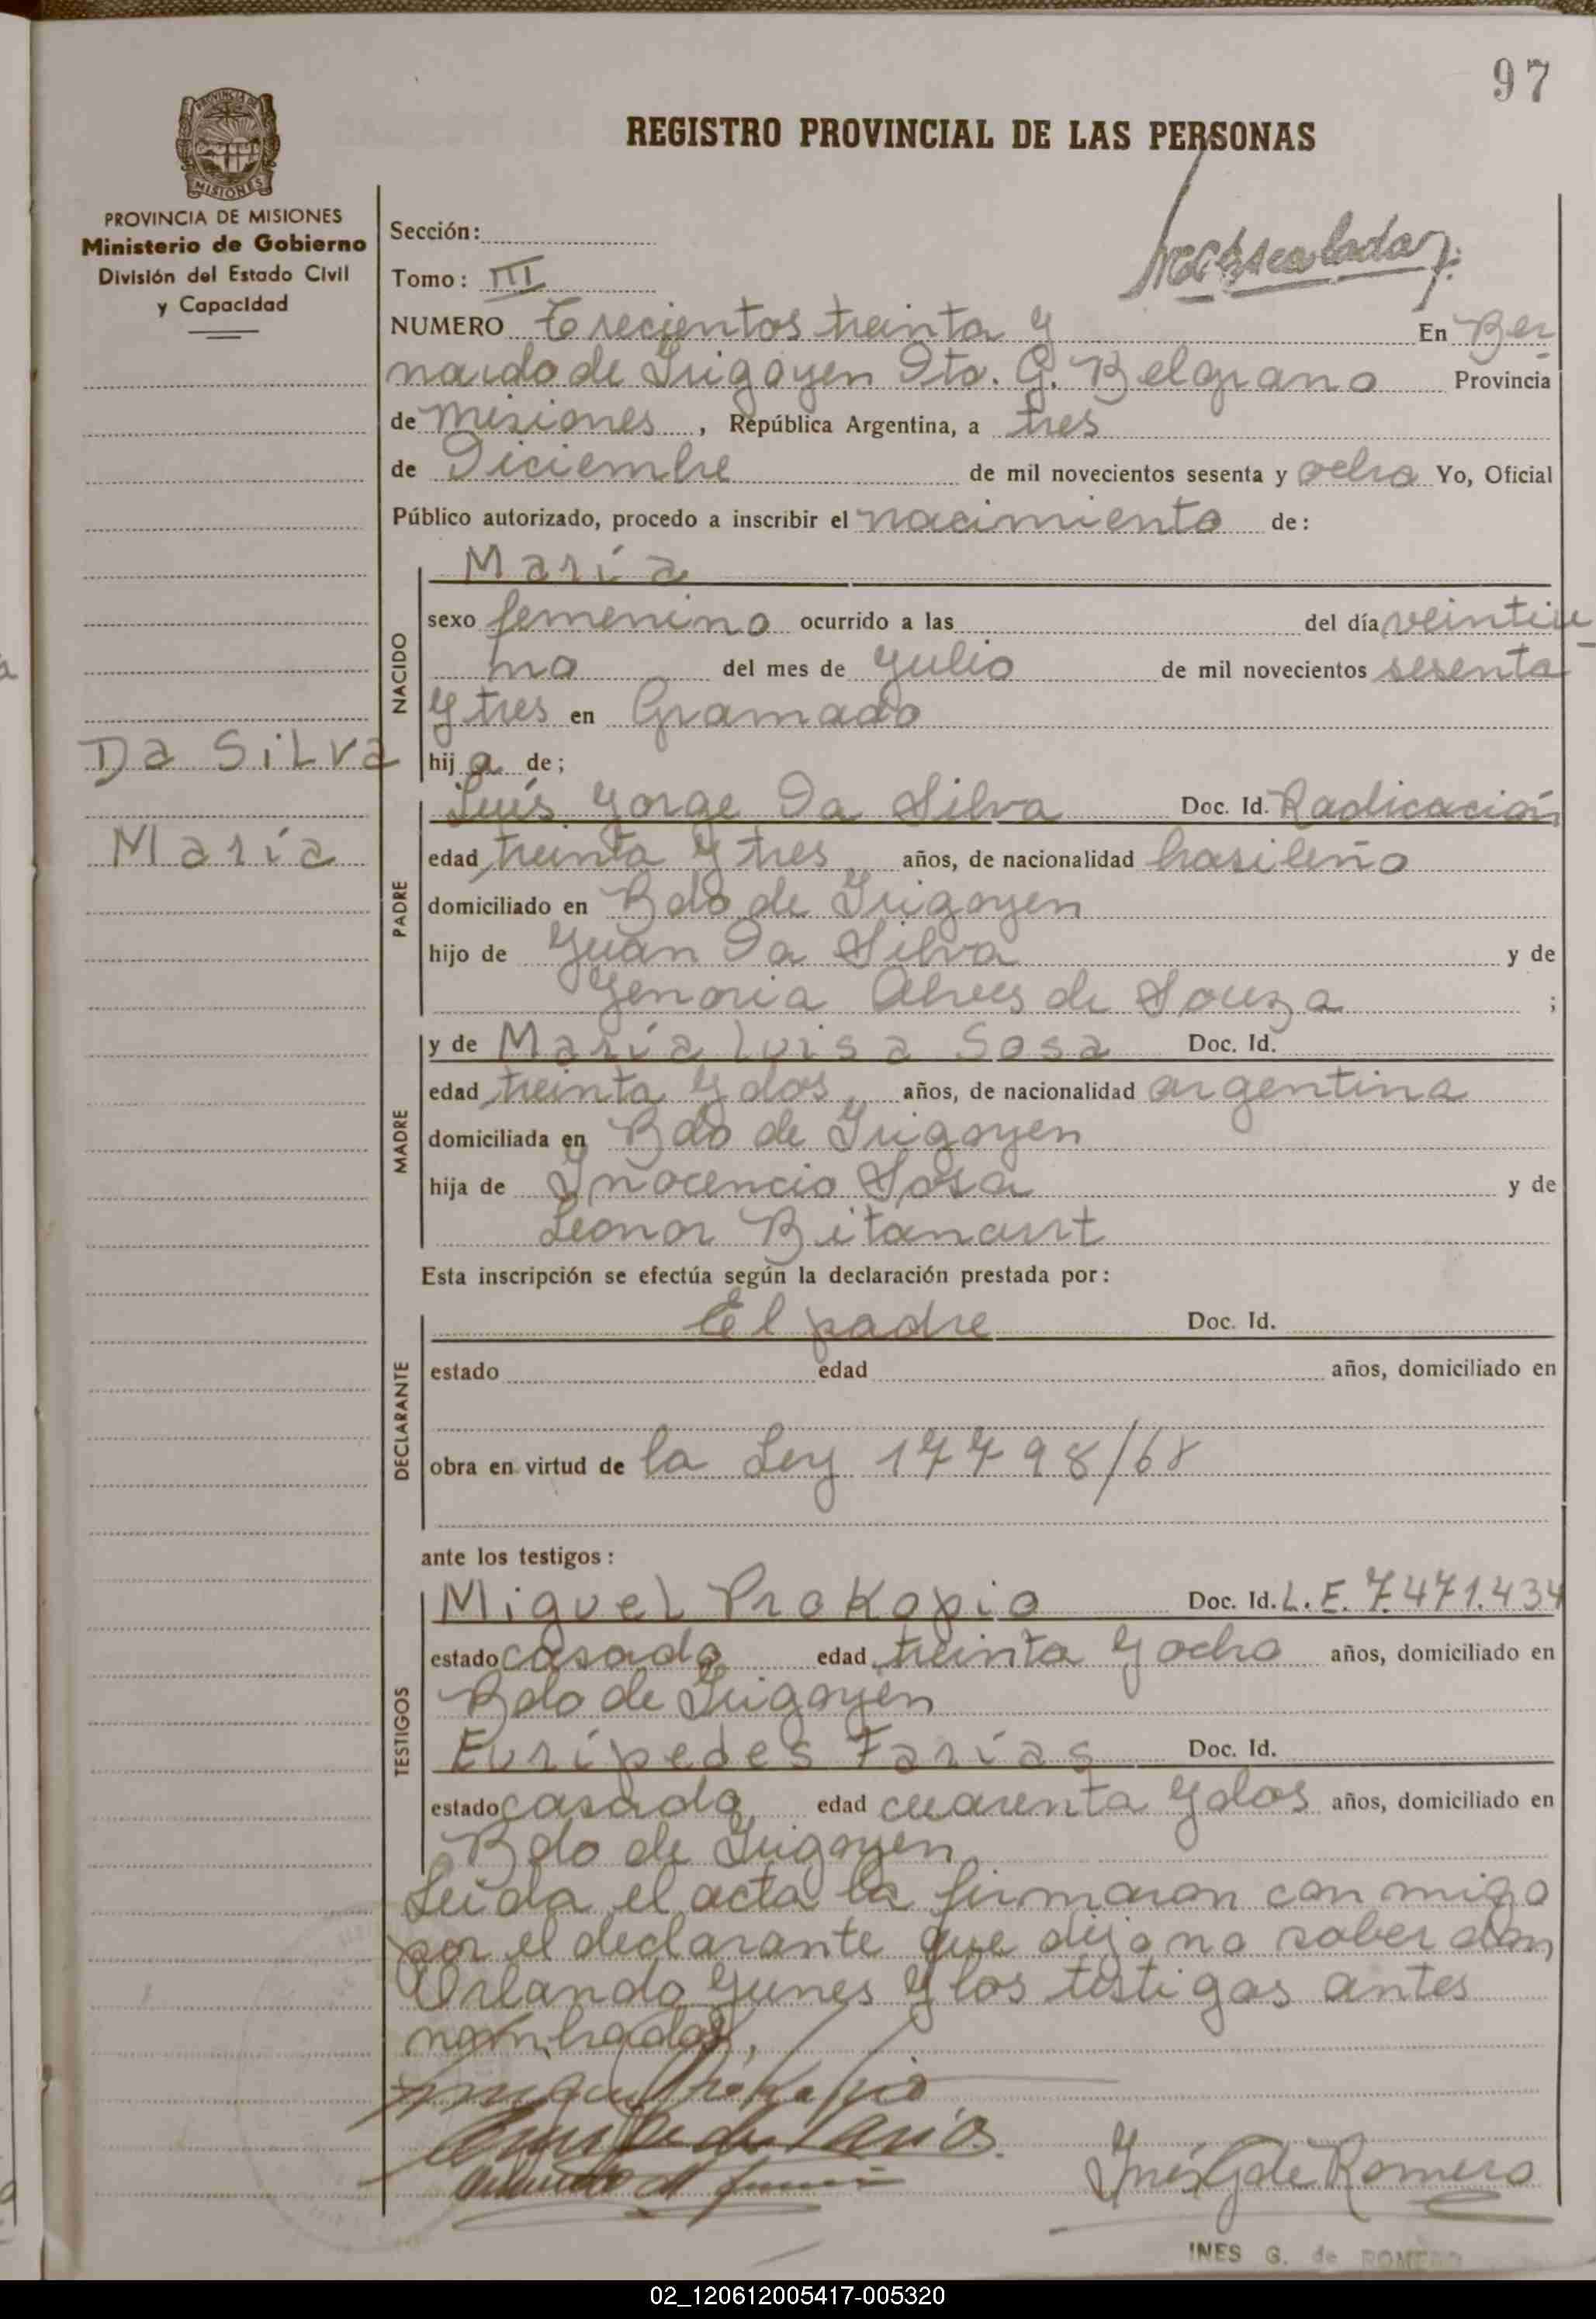 97
REGISTRO PROVINCIAL DE LAS PERSONAS
PROVINCIA DE MISIONES
Ministerio de Gobierno
División del Estado Civil
y Capacidad
Sección:
Tomo: III
NUMERO Trecientos treinta y En Ber
nardo de Irigoyen Dto. G. Belgrano Provincia
de Misiones, República Argentina, a tres
de Diciembre de mil novecientos sesenta y ocho Yo, Oficial
Público autorizado, procedo a inscribir el nacimiento de:
NACIDO
María
sexo femenino ocurrido a las del día veintiu
no del mes de Julio de mil novecientos sesenta
y tres en Gramado
hija de;
Da Silva
María
PADRE
Luís Jorge Da Silva Doc. Id. Radicación
edad treinta y tres años, de nacionalidad brasileño
domiciliado en Bdo de Irigoyen
hijo de Juan Da Silva y de
Jenoria Alves de Souza ;
MADRE
y de María Luisa Sosa Doc. Id.
edad treinta y dos años, de nacionalidad argentina
domiciliada en Bdo de Irigoyen
hija de Inocencio Sosa y de
Leonor Bitancurt
Esta inscripción se efectúa según la declaración prestada por:
DECLARANTE
El padre Doc. Id.
estado edad años, domiciliado en
obra en virtud de la Ley 17798/68
ante los testigos:
TESTIGOS
Miguel Prokopio Doc. Id. L.E. 7.471.434
estado casado edad treinta y ocho años, domiciliado en
Bdo de Irigoyen
Eurípedes Farías Doc. Id.
estado casado edad cuarenta y dos años, domiciliado en
Bdo de Irigoyen
Leida el acta la firmaron con migo
por el declarante que dijo no saber don
Orlando Junes y los testigos antes
nombrados,
Miguel Prokopio
Euripedes Farias
Inés G de Romero
INES G. de ROMERO
02_120612005417-005320